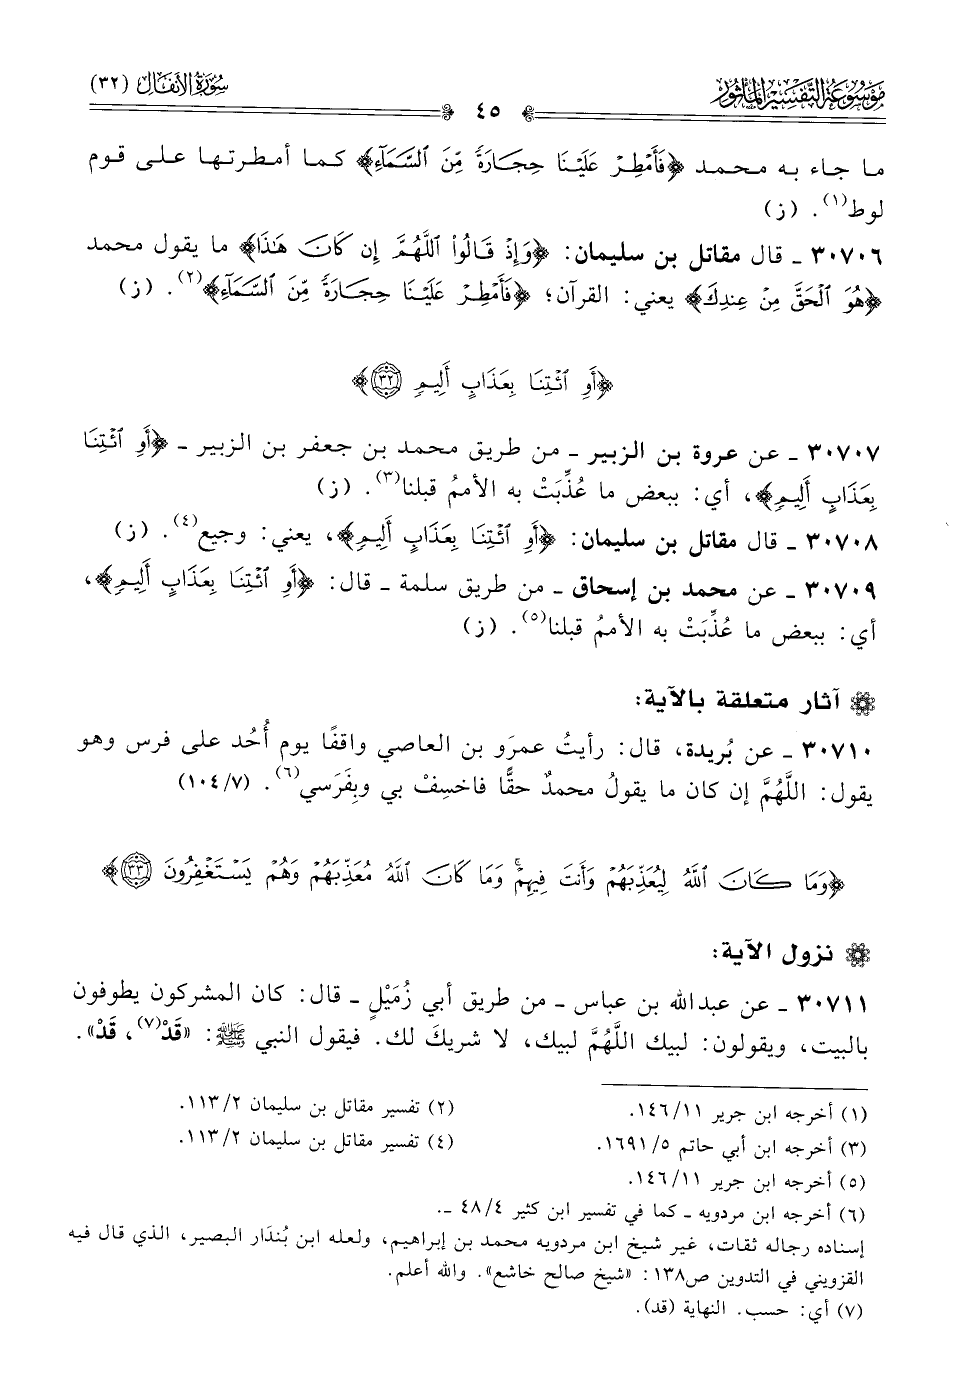 موسوعة التفسير المأثور
سورة الأنفال (٣٢)
٤٥
ما جاء به محمد ﴿فَأَمْطِرْ عَلَيْنَا حِجَارَةً مِّنَ ٱلسَّمَآءِ﴾ كما أمطرتها على قوم
لوط(١). (ز)
٣٠٧٠٦ ـ قال مقاتل بن سليمان: ﴿وَإِذْ قَالُوا۟ ٱللَّهُمَّ إِن كَانَ هَـٰذَا﴾ ما يقول محمد
﴿هُوَ ٱلْحَقَّ مِنْ عِندِكَ﴾ يعني: القرآن؛ ﴿فَأَمْطِرْ عَلَيْنَا حِجَارَةً مِّنَ ٱلسَّمَآءِ﴾(٢). (ز)
﴿أَوِ ٱئْتِنَا بِعَذَابٍ أَلِيمٍ ٣٢﴾
٣٠٧٠٧ ـ عن عروة بن الزبير ـ من طريق محمد بن جعفر بن الزبير ـ ﴿أَوِ ٱئْتِنَا
بِعَذَابٍ أَلِيمٍ﴾، أي: ببعض ما عُذِّبَتْ به الأممُ قبلنا(٣). (ز)
٣٠٧٠٨ ـ قال مقاتل بن سليمان: ﴿أَوِ ٱئْتِنَا بِعَذَابٍ أَلِيمٍ﴾، يعني: وجيع(٤). (ز)
٣٠٧٠٩ ـ عن محمد بن إسحاق ـ من طريق سلمة ـ قال: ﴿أَوِ ٱئْتِنَا بِعَذَابٍ أَلِيمٍ﴾،
أي: ببعض ما عُذِّبَتْ به الأممُ قبلنا(٥). (ز)
آثار متعلقة بالآية:
٣٠٧١٠ ـ عن بُريدة، قال: رأيتُ عمرَو بن العاصي واقفًا يوم أُحُد على فرس وهو
يقول: اللَّهُمَّ إن كان ما يقولُ محمدٌ حقًّا فاخسِفْ بي وبِفَرَسي(٦). (١٠٤/٧)
﴿وَمَا كَانَ ٱللَّهُ لِيُعَذِّبَهُمْ وَأَنتَ فِيهِمْ ۚ وَمَا كَانَ ٱللَّهُ مُعَذِّبَهُمْ وَهُمْ يَسْتَغْفِرُونَ ٣٣﴾
نزول الآية:
٣٠٧١١ ـ عن عبدالله بن عباس ـ من طريق أبي زُمَيْلٍ ـ قال: كان المشركون يطوفون
بالبيت، ويقولون: لبيك اللَّهُمَّ لبيك، لا شريكَ لك. فيقول النبي ﷺ: «قَدْ(٧)، قَدْ».
(١) أخرجه ابن جرير ١٤٦/١١.
(٢) تفسير مقاتل بن سليمان ١١٣/٢.
(٣) أخرجه ابن أبي حاتم ١٦٩١/٥.
(٤) تفسير مقاتل بن سليمان ١١٣/٢.
(٥) أخرجه ابن جرير ١٤٦/١١.
(٦) أخرجه ابن مردويه ـ كما في تفسير ابن كثير ٤٨/٤ ـ.
إسناده رجاله ثقات، غير شيخ ابن مردويه محمد بن إبراهيم، ولعله ابن بُندَار البصير، الذي قال فيه
القزويني في التدوين ص١٣٨: «شيخ صالح خاشع». والله أعلم.
(٧) أي: حسب. النهاية (قد).